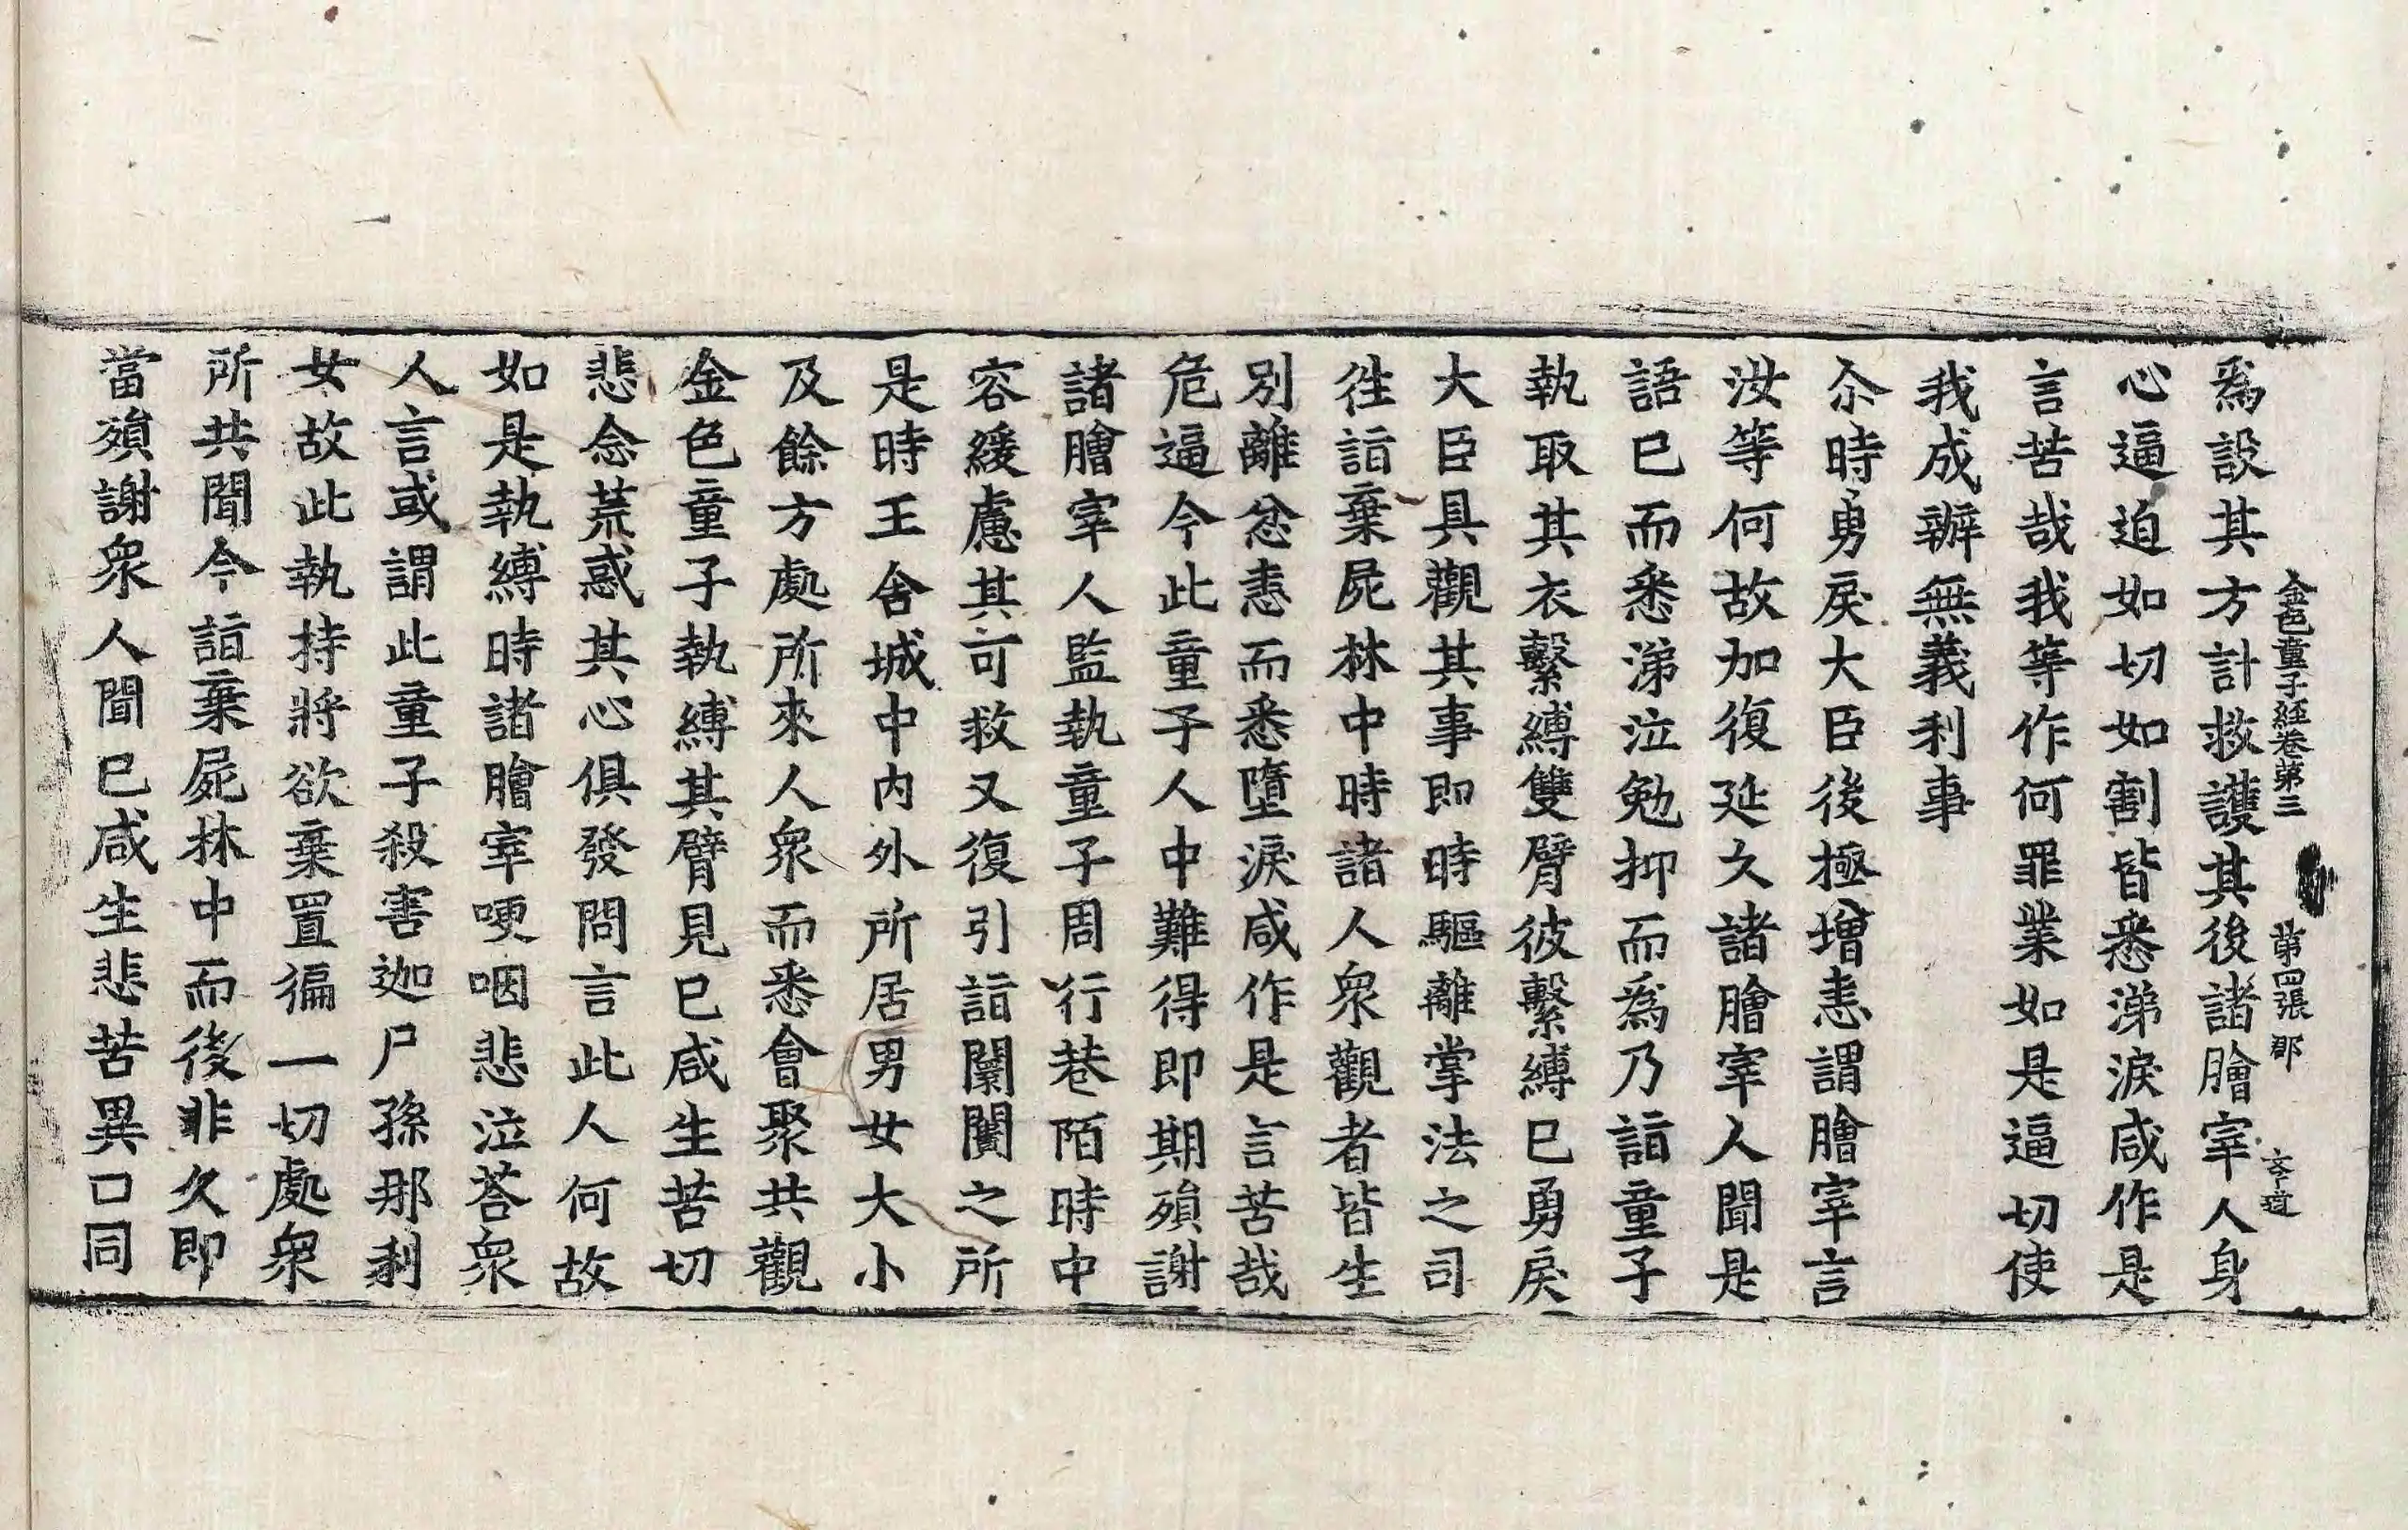 金色童子経卷第三 第四張 郡
爲設其方計救護其後諸膾宰人身
心逼迫如切如割皆悉涕淚咸作是
言苦哉我等作何罪業如是逼切使
我成辦無義利事
尒時勇戾大臣後極增恚謂膾宰言
汝等何故加復延久諸膾宰人聞是
語已而悉涕泣勉抑而爲乃詣童子
執取其衣繫縛雙臂彼繫縛已勇戾
大臣具觀其事即時驅離掌法之司
徃詣棄屍林中時諸人衆觀者皆生
別離忿恚而悉墮淚咸作是言苦哉
危逼今此童子人中難得即期殞謝
諸膾宰人監執童子周行巷陌時中
容緩慮其可救又復引詣闤闠之所
是時王舍城中內外所居男女大小
及餘方處所來人衆而悉會聚共觀
金色童子執縛其臂見已咸生苦切
悲念荒惑其心俱發問言此人何故
如是執縛時諸膾宰哽咽悲泣荅衆
人言或謂此童子殺害迦尸孫那利
女故此執持將欲棄置徧一切處衆
所共聞今詣棄屍林中而後非久即
當殞謝衆人聞已咸生悲苦異口同